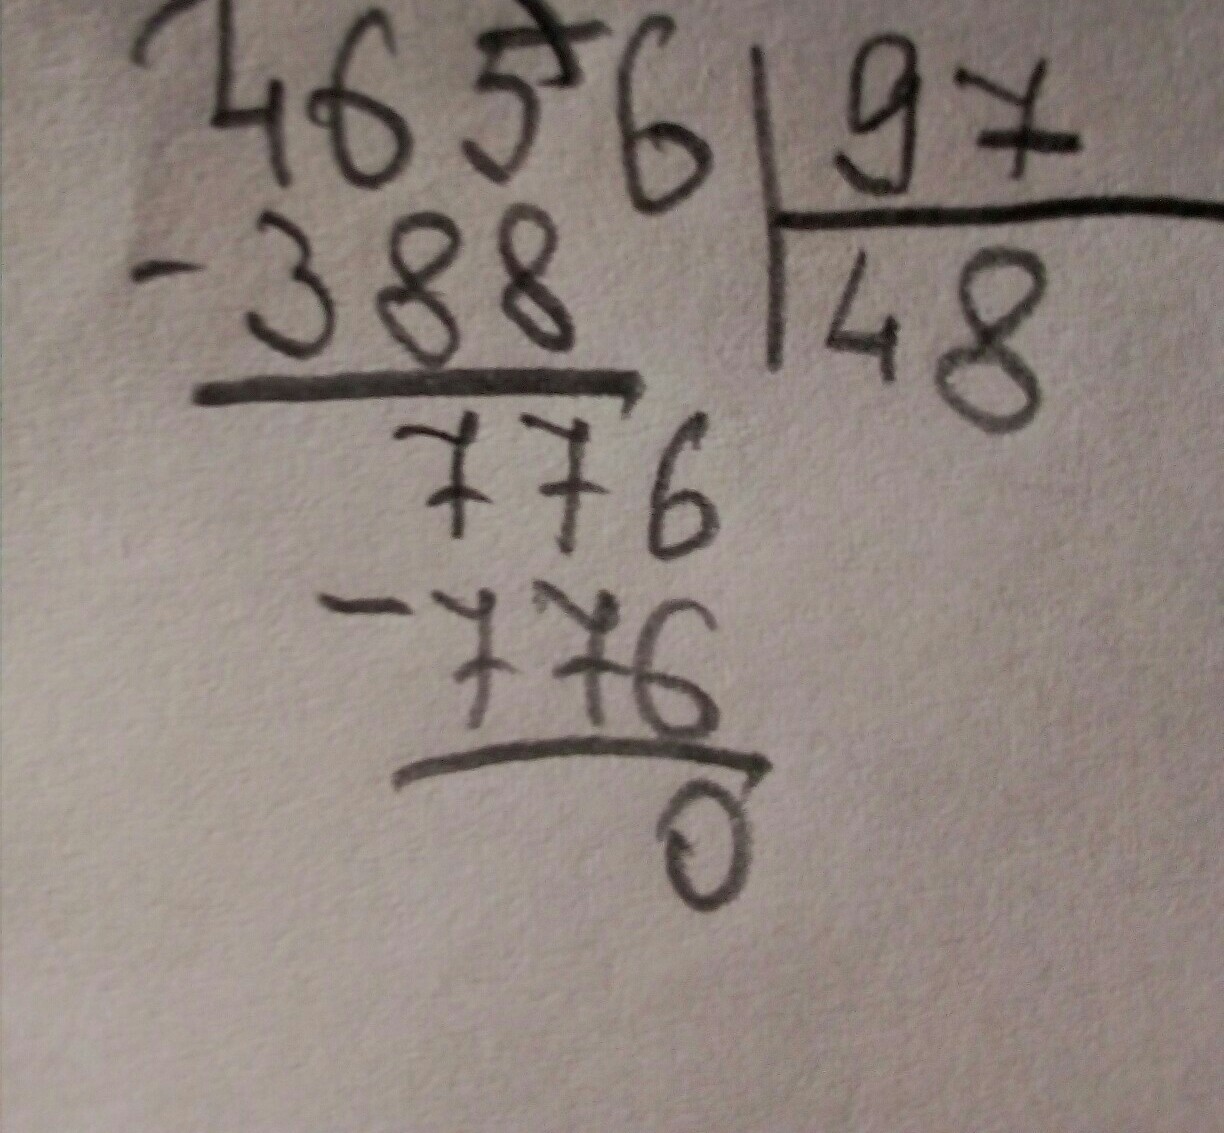 4656 97
-388 48
776
-776
0